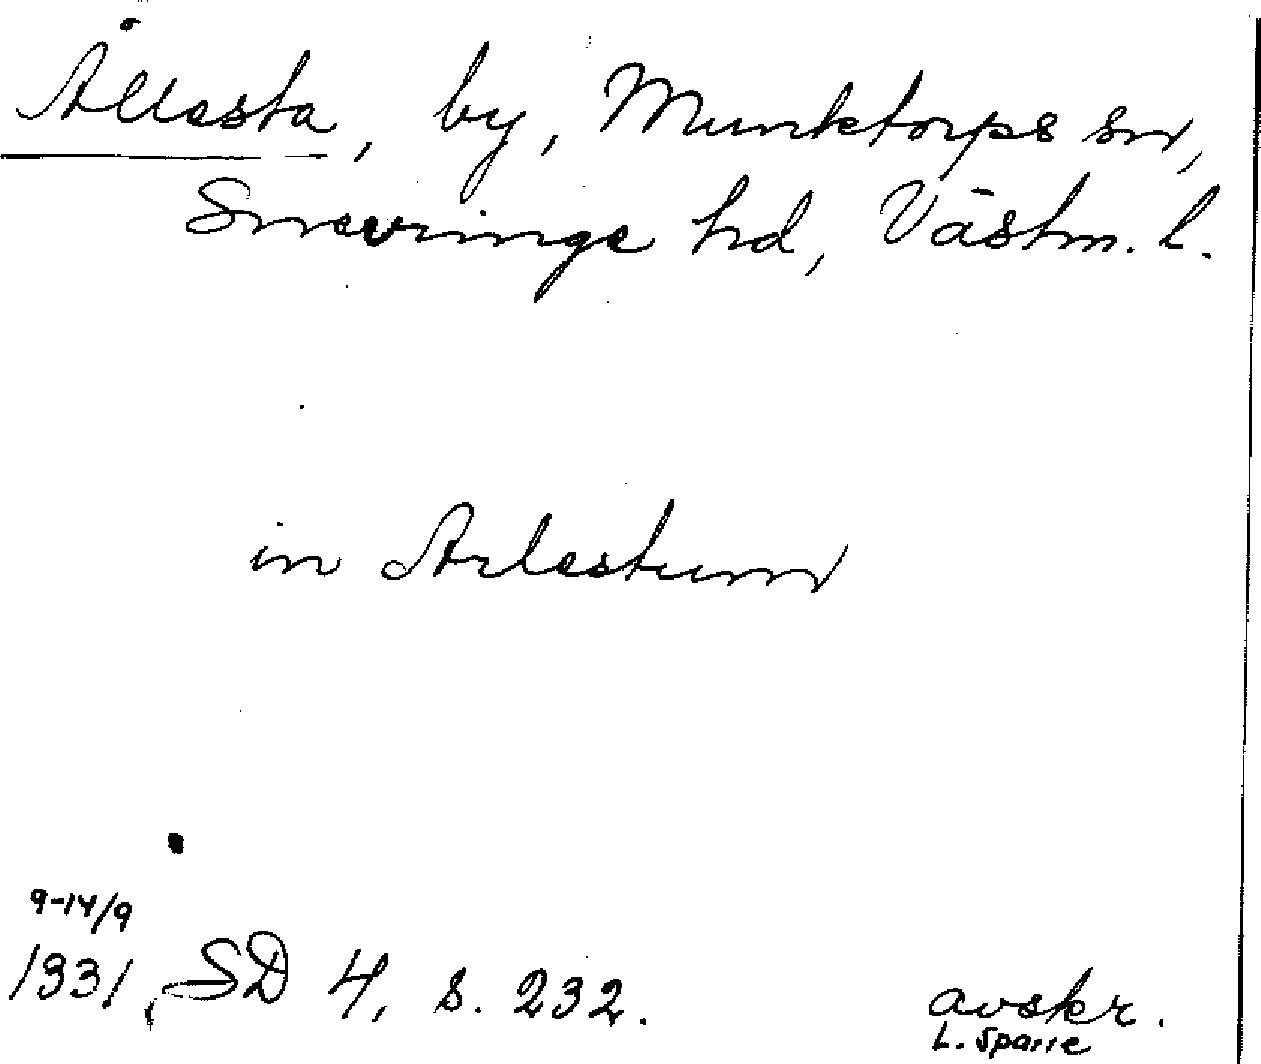 Ållesta, by, Munktorps sn,
Snevringe hd, Västm. l.
in Arlestum
9-14/9
1331, SD 4, s. 232.
avskr.
L. Sparre